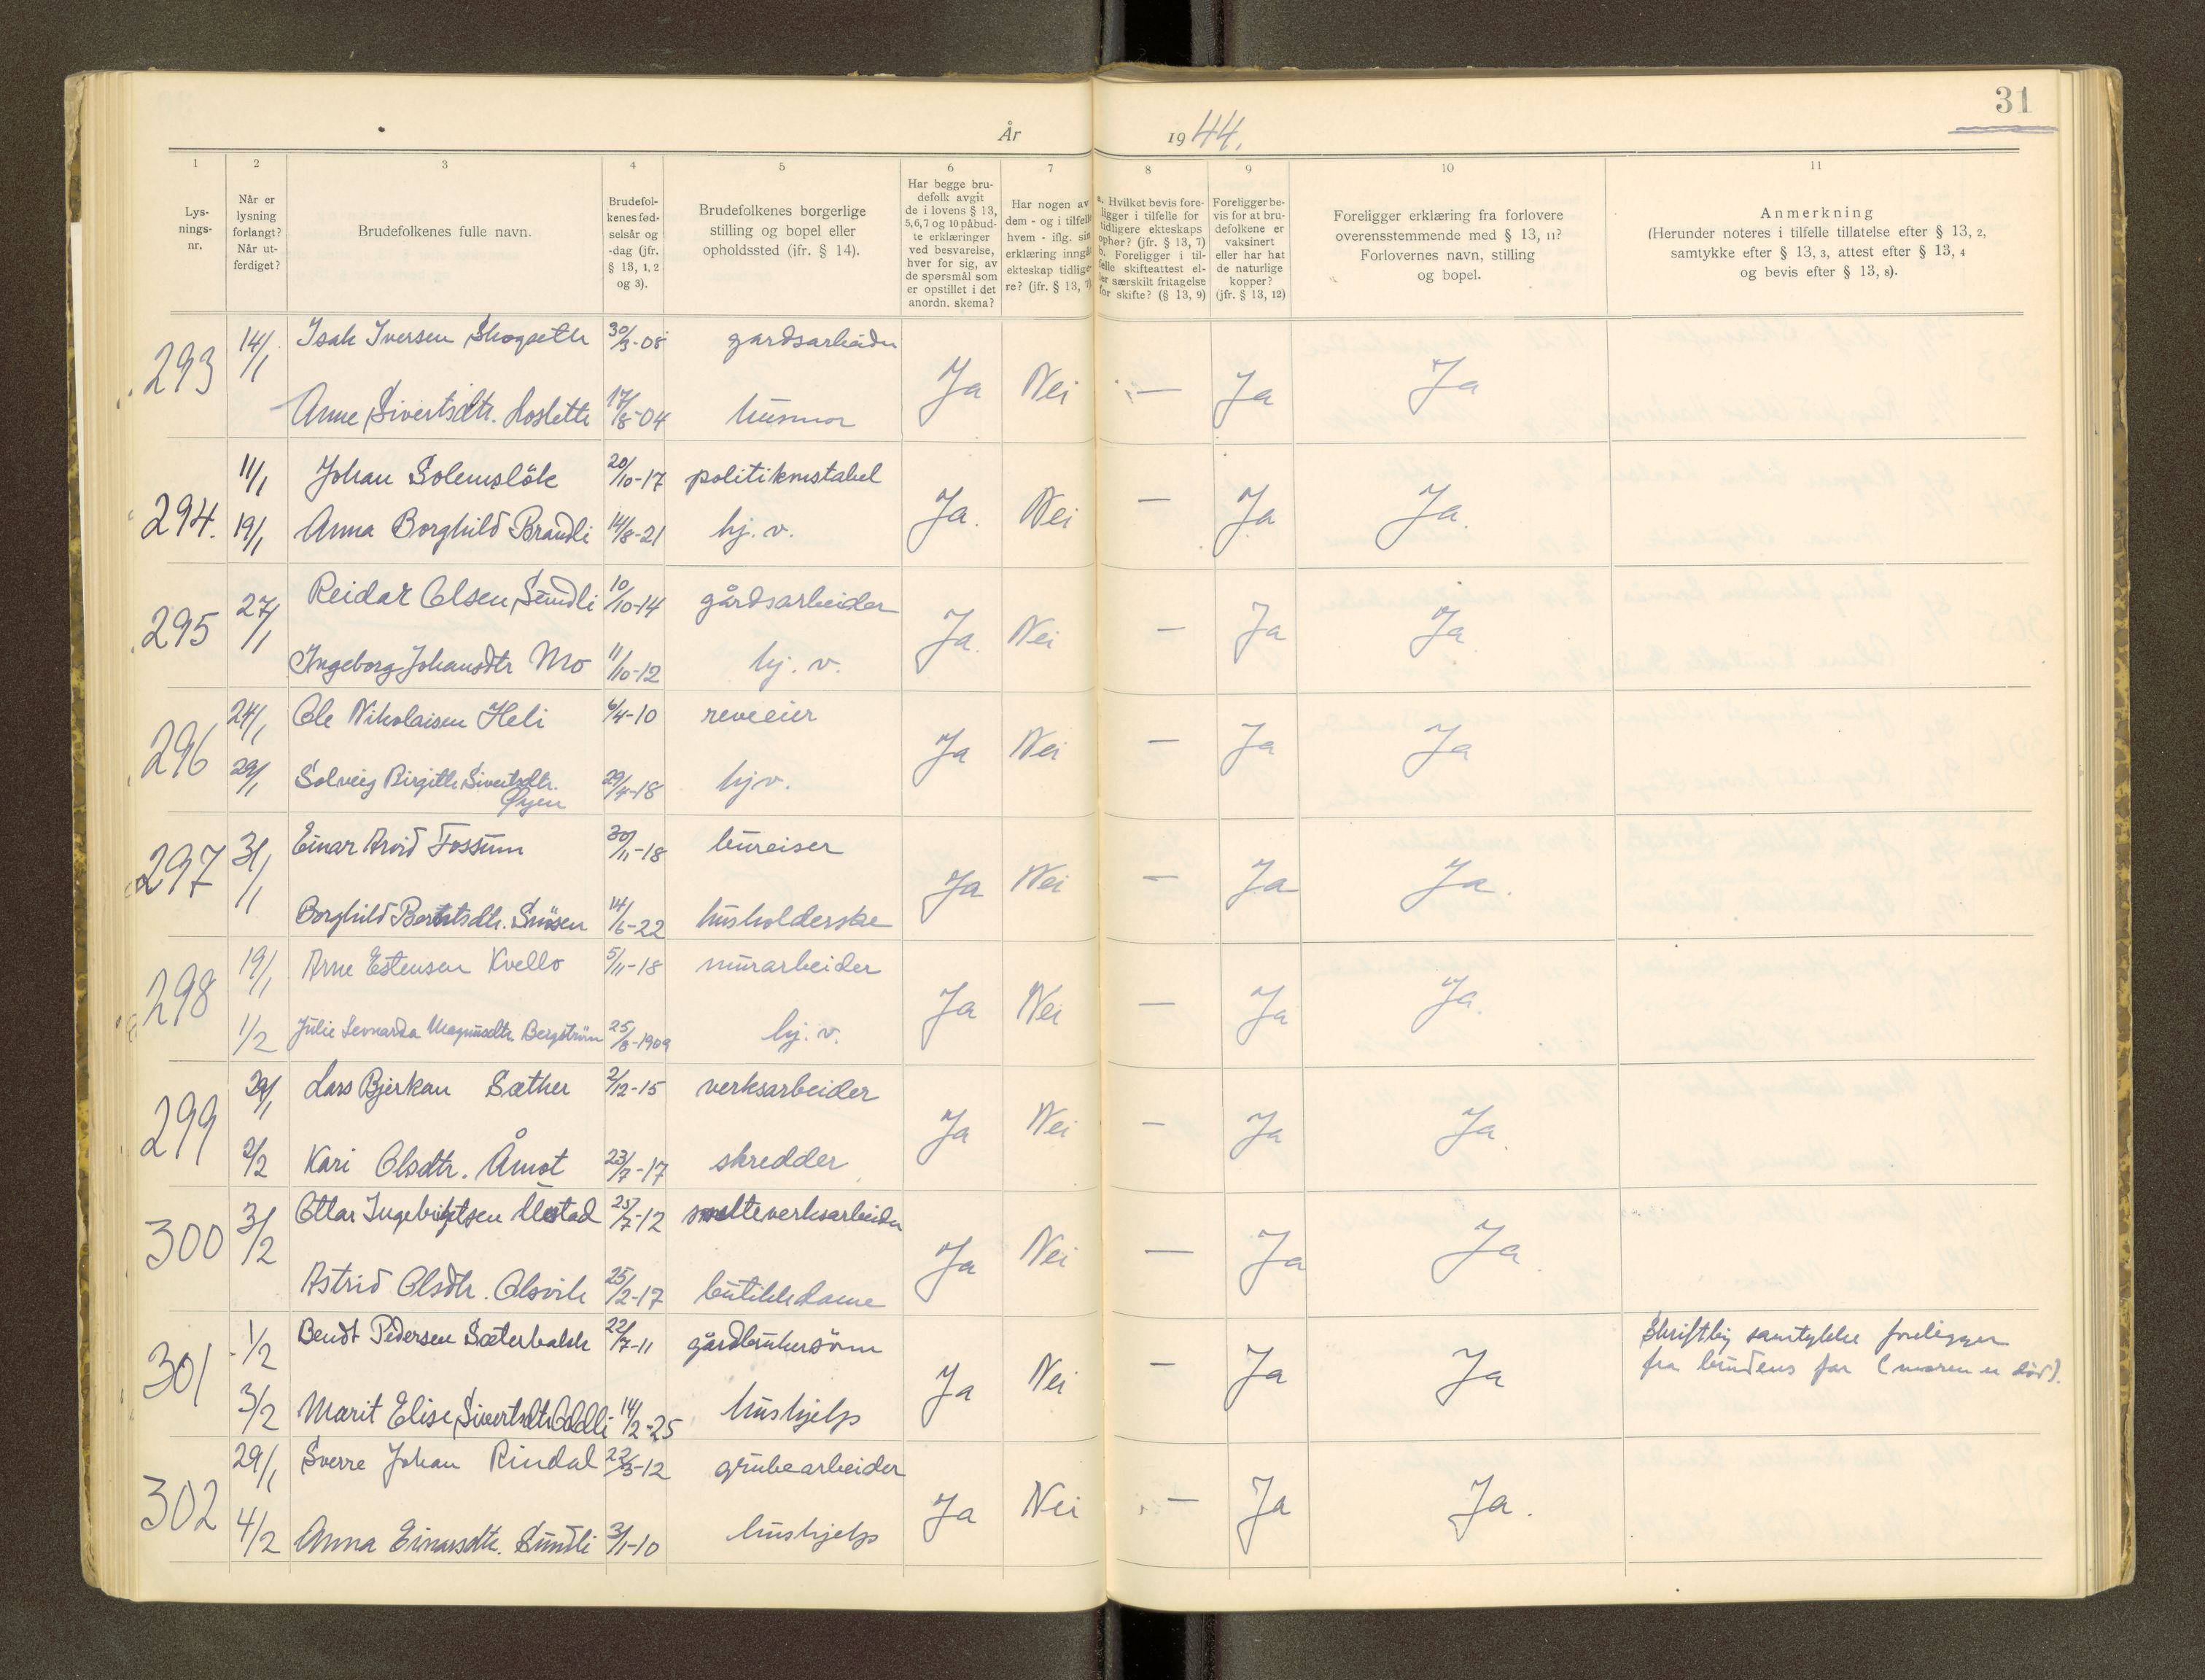 31
År 1944.
1 2 3 4 5 6 7 8 9 10 11
Lys-
nings-
nr.
Når er
lysning
forlangt?
Når ut-
ferdiget?
Brudefolkenes fulle navn.
Brudefol-
kenes fød-
selsår og
-dag (jfr.
§ 13, 1, 2
og 3).
Brudefolkenes borgerlige
stilling og bopel eller
opholdssted (ifr. § 14).
Har begge bru-
defolk avgit
de i lovens § 13,
5,6,7 og 10 påbud-
te erklæringer
ved besvarelse,
hver for sig, av
de spørsmål som
er opstillet i det
anordn. skema?
Har nogen av
dem - og i tilfelle
hvem - iflg. sin
erklæring inngå
ekteskap tidlige-
re? (jfr. § 13, 7)
a. Hvilket bevis fore-
ligger i tilfelle for
tidligere ekteskaps
ophør? (jfr. § 13, 7)
b. Foreligger i til-
felle skifteattest el-
ler særskilt fritagelse
for skifte? (§ 13, 9)
Foreligger be-
vis for at bru-
defolkene er
vaksinert
eller har hat
de naturlige
kopper?
(jfr. § 13, 12)
Foreligger erklæring fra forlovere
overensstemmende med § 13, 11?
Forlovernes navn, stilling
og bopel.
Anmerkning
(Herunder noteres i tilfelle tillatelse efter § 13, 2,
samtykke efter § 13, 3, attest efter § 13, 4
og bevis efter § 13, 8).
293 14/1 Isak Iversen Skogseth 30/3-08 gardsarbeider
Anne Sivertsdtr. Losletti 17/8-04 husmor Ja Nei — Ja Ja
294. 11/1 Johan Solemsløk 20/10-17 politikonstabel
19/1 Anna Borghild Brandli 14/8-21 hj. v. Ja. Nei — Ja Ja.
295 27/1 Reidar Olsen Sundli 10/10-14 gårdsarbeider
Ingeborg Johansdtr Mo 11/10-12 hj. v. Ja. Nei — Ja Ja
296 24/1 Ole Nikolaisen Heli 6/4-10 reveeier
29/1 Solveig Birgitte Sivertsdtr. Øyen 29/4-18 hjv. Ja Nei — Ja Ja
297 31/1 Einar Arvid Fossum 30/11-18 bureiser
Borghild Berntsdtr. Snøsen 14/6-22 husholderske Ja Nei — Ja Ja.
298 19/1 Arne Estensen Kvello 5/11-18 murarbeider
1/2 Julie Leonarda Magnusdtr. Bergström 25/8-1909 hj. v. Ja Nei — Ja Ja.
299 29/1 Lars Bjerkan Sæther 2/12-15 verksarbeider
2/2 Kari Olsdtr. Åmot 23/7-17 skredder Ja Nei — Ja Ja.
300 3/2 Ottar Ingebrigtsen 25/7-12 smelteverksarbeider
Astrid Olsdtr. Olsvik 25/2-17 butikkdame Ja Nei — Ja Ja.
301 1/2 Bendt Pedersen Sæterbakk 22/7-11 gårdbrukersønn
3/2 Marit Elise Sivertsdtr 14/2-25 hushjelp Ja Nei — Ja Ja
Skriftlig samtykke foreligger
fra brudens far (moren er død).
302 29/1 Sverre Johan Rindal 22/3-12 grubearbeider
4/2 Anna Einarsdtr. Sundli 3/1-10 hushjelp Ja Nei — Ja Ja.